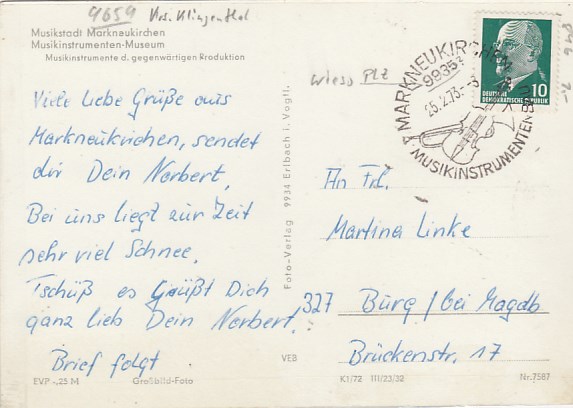 9659 Krs. Klingenthal
Musikstadt Markneukirchen
Musikinstrumenten-Museum
Musikinstrumente d. gegenwärtigen Produktion
Viele liebe Grüße aus
Markneukirchen, sendet
dir Dein Norbert,
Bei uns liegt zur Zeit
sehr viel Schnee,
Tschüß es Grüßt Dich
ganz lieb Dein Norbert!
Brief folgt
EVP -,25 M Großbild-Foto
Foto-Verlag 9934 Erlbach i. Vogtl.
VEB
wieso PLZ
MARKNEUKIRCHEN
9935
MUSIKINSTRUMENTEN
10
DEUTSCHE
DEMOKRATISCHE REPUBLIK
An Frl.
Martina Linke
327 Burg/bei Magdb
Brückenstr. 17
K1/72 III/23/32 Nr. 7587